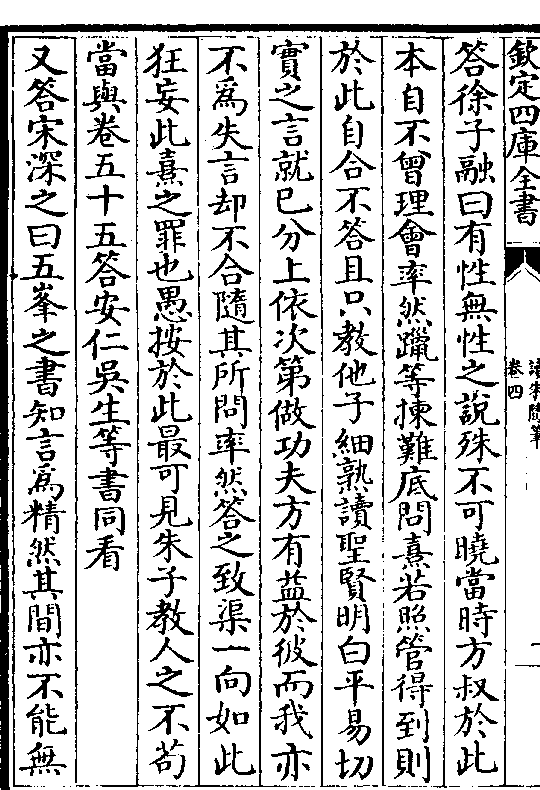 欽定四庫全書
卷四
答徐子融曰有性無性之說殊不可曉當時方叔於此
本自不曾理會率然躐等揀難底問熹若照管得到則
於此自合不答且只教他子細熟讀聖賢明白平易切
實之言就已分上依次第做功夫方有益於彼而我亦
不為失言却不合隨其所問率然答之致渠一向如此
狂妄此熹之罪也愚按於此最可見朱子教人之不苟
當與卷五十五答安仁吳生等書同看
又答宋深之曰五峯之書知言為精然其間亦不能無